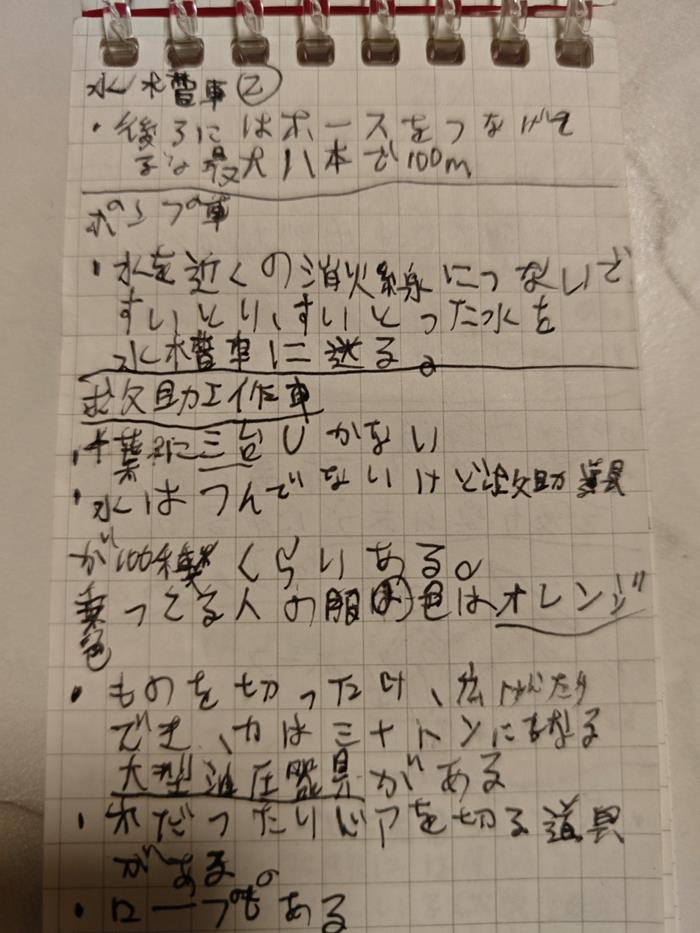 水槽車②
・後ろにはホースをつなげて
るな最大八本で100m
ポンプ車
・水を近くの消火線につないで
すいとり、すいとった水を
水槽車に送る。
救助工作車
・千葉に三台しかない
・水はつんでないけど救助道具
が100種くらいある。
乗ってる人の服の色はオレンジ
色
・ものを切ったり、広げたり
でき、力は三十トンにもなる
大型油圧器具がある
・木だったりドアを切る道具
がある。
・ロープもある